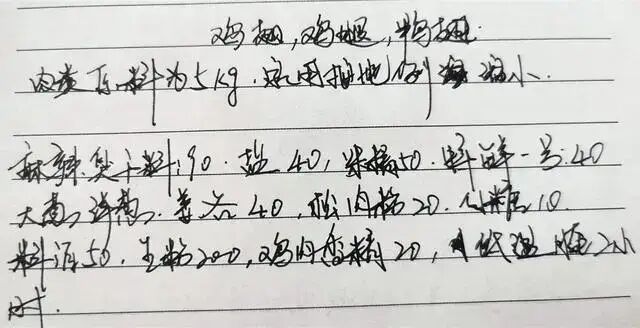 鸡翅,鸡腿,鸭翅.
肉类原料为5kg.家用按比例缩小.
麻辣炸料:90.盐40,味精50.鲜一号:40
大葱,洋葱,姜各40,松肉粉20.白糖10
料酒50.生粉200,鸡肉香精20,低温腌2小
时.